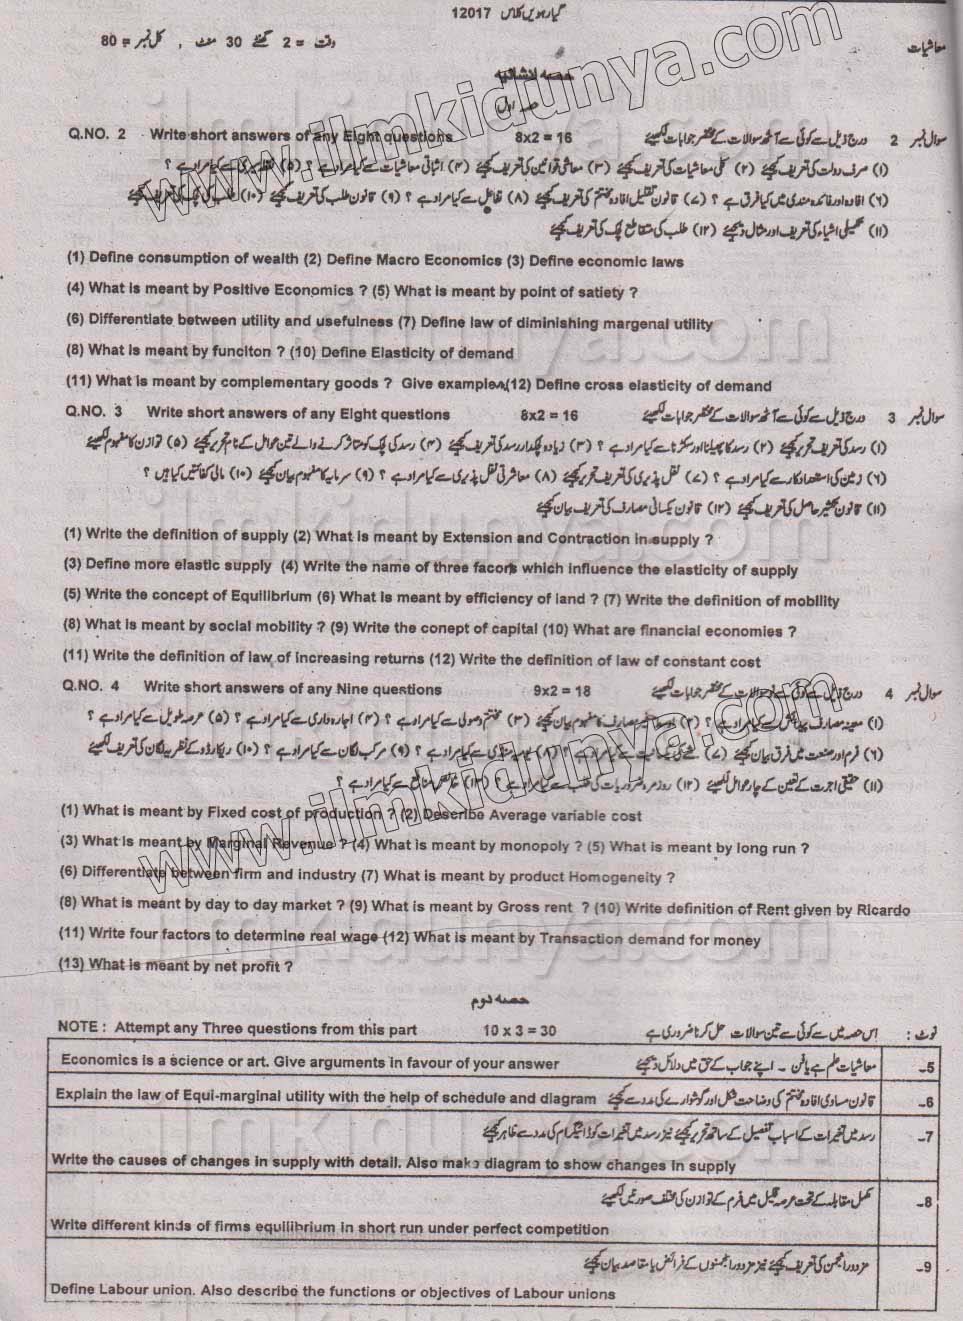 گیارہویں کلاس 12017
معاشیات
وقت = 2 گھنٹے 30 منٹ , کل نمبر = 80
حصہ انشائیہ
حصہ اول
Q.NO. 2 Write short answers of any Eight questions 8x2 = 16 درج ذیل سے کوئی سے آٹھ سوالات کے مختصر جوابات لکھیئے سوال نمبر 2
(۱) صرف دولت کی تعریف کیجئے (۲) کلی معاشیات کی تعریف کیجئے (۳) معاشی قوانین کی تعریف کیجئے (۴) اثباتی معاشیات سے کیا مراد ہے ؟ (۵) نقطہ سیری سے کیا مراد ہے ؟
(۶) افادہ اور فائدہ مندی میں کیا فرق ہے ؟ (۷) قانون تقلیل افادہ مختتم کی تعریف کیجئے (۸) تفاعل سے کیا مراد ہے ؟ (۹) قانون طلب کی تعریف کیجئے (۱۰) طلب کی لچک کی تعریف کیجئے
(۱۱) تکمیلی اشیاء کی تعریف اور مثال دیجئے (۱۲) طلب کی متقاطع لچک کی تعریف کیجئے
(1) Define consumption of wealth (2) Define Macro Economics (3) Define economic laws
(4) What is meant by Positive Economics ? (5) What is meant by point of satiety ?
(6) Differentiate between utility and usefulness (7) Define law of diminishing margenal utility
(8) What is meant by funciton ? (10) Define Elasticity of demand
(11) What is meant by complementary goods ? Give examples (12) Define cross elasticity of demand
Q.NO. 3 Write short answers of any Eight questions 8x2 = 16 درج ذیل سے کوئی سے آٹھ سوالات کے مختصر جوابات لکھیئے سوال نمبر 3
(۱) رسد کی تعریف تحریر کیجئے (۲) رسد کا پھیلنا اور سکڑنا سے کیا مراد ہے ؟ (۳) زیادہ لچکدار رسد کی تعریف کیجئے (۴) رسد کی لچک کو متاثر کرنے والے تین عوامل کے نام تحریر کیجئے (۵) توازن کا مفہوم لکھیئے
(۶) زمین کی استعداد کار سے کیا مراد ہے ؟ (۷) نقل پذیری کی تعریف تحریر کیجئے (۸) معاشرتی نقل پذیری سے کیا مراد ہے ؟ (۹) سرمایہ کا مفہوم بیان کیجئے (۱۰) مالی کفائتیں کیا ہیں ؟
(۱۱) قانون تکثیر حاصل کی تعریف کیجئے (۱۲) قانون یکسانی مصارف کی تعریف بیان کیجئے
(1) Write the definition of supply (2) What is meant by Extension and Contraction in supply ?
(3) Define more elastic supply (4) Write the name of three facors which influence the elasticity of supply
(5) Write the concept of Equilibrium (6) What is meant by efficiency of land ? (7) Write the definition of mobility
(8) What is meant by social mobility ? (9) Write the conept of capital (10) What are financial economies ?
(11) Write the definition of law of increasing returns (12) Write the definition of law of constant cost
Q.NO. 4 Write short answers of any Nine questions 9x2 = 18 درج ذیل سے کوئی سے نو سوالات کے مختصر جوابات لکھیئے سوال نمبر 4
(۱) معینہ مصارف پیدائش سے کیا مراد ہے ؟ (۲) اوسط متغیر مصارف کا مفہوم بیان کیجئے (۳) مختتم وصولی سے کیا مراد ہے ؟ (۴) اجارہ داری سے کیا مراد ہے ؟ (۵) عرصہ طویل سے کیا مراد ہے ؟
(۶) فرم اور صنعت میں فرق بیان کیجئے (۷) شے کی یکسانیت سے کیا مراد ہے ؟ (۸) یومیہ منڈی سے کیا مراد ہے ؟ (۹) مرکب لگان سے کیا مراد ہے ؟ (۱۰) ریکارڈو کے نظریہ لگان کی تعریف لکھیئے
(۱۱) حقیقی اجرت کے تعین کے چار عوامل لکھیئے (۱۲) روزمرہ ضروریات کی طلب سے کیا مراد ہے ؟ (۱۳) خالص منافع سے کیا مراد ہے ؟
(1) What is meant by Fixed cost of production ? (2) Describe Average variable cost
(3) What is meant by Marginal Revenue ? (4) What is meant by monopoly ? (5) What is meant by long run ?
(6) Differentiate between firm and industry (7) What is meant by product Homogeneity ?
(8) What is meant by day to day market ? (9) What is meant by Gross rent ? (10) Write definition of Rent given by Ricardo
(11) Write four factors to determine real wage (12) What is meant by Transaction demand for money
(13) What is meant by net profit ?
حصہ دوم
NOTE : Attempt any Three questions from this part 10 x 3 = 30 اس حصہ میں سے کوئی سے تین سوالات حل کرنا ضروری ہے نوٹ :
Economics is a science or art. Give arguments in favour of your answer معاشیات علم ہے یا فن - اپنے جواب کے حق میں دلائل دیجئے 5-
Explain the law of Equi-marginal utility with the help of schedule and diagram قانون مساوی افادہ مختتم کی وضاحت شکل اور گوشوارے کی مدد سے کیجئے 6-
رسد میں تغیرات کے اسباب تفصیل کے ساتھ تحریر کیجئے نیز رسد میں تغیرات کو ڈائیگرام کی مدد سے ظاہر کیجئے 7-
Write the causes of changes in supply with detail. Also make diagram to show changes in supply
مکمل مقابلہ کے تحت عرصہ قلیل میں فرم کے توازن کی مختلف صورتیں لکھیئے 8-
Write different kinds of firms equilibrium in short run under perfect competition
مزدور انجمن کی تعریف کیجئے نیز مزدور انجمنوں کے فرائض یا مقاصد بیان کیجئے 9-
Define Labour union. Also describe the functions or objectives of Labour unions
www.ilmkidunya.com
www.ilmkidunya.com
ilmkidunya.com
ilmkidunya.com
ilmkidunya.com
ilmkidunya.com
ilmkidunya.com